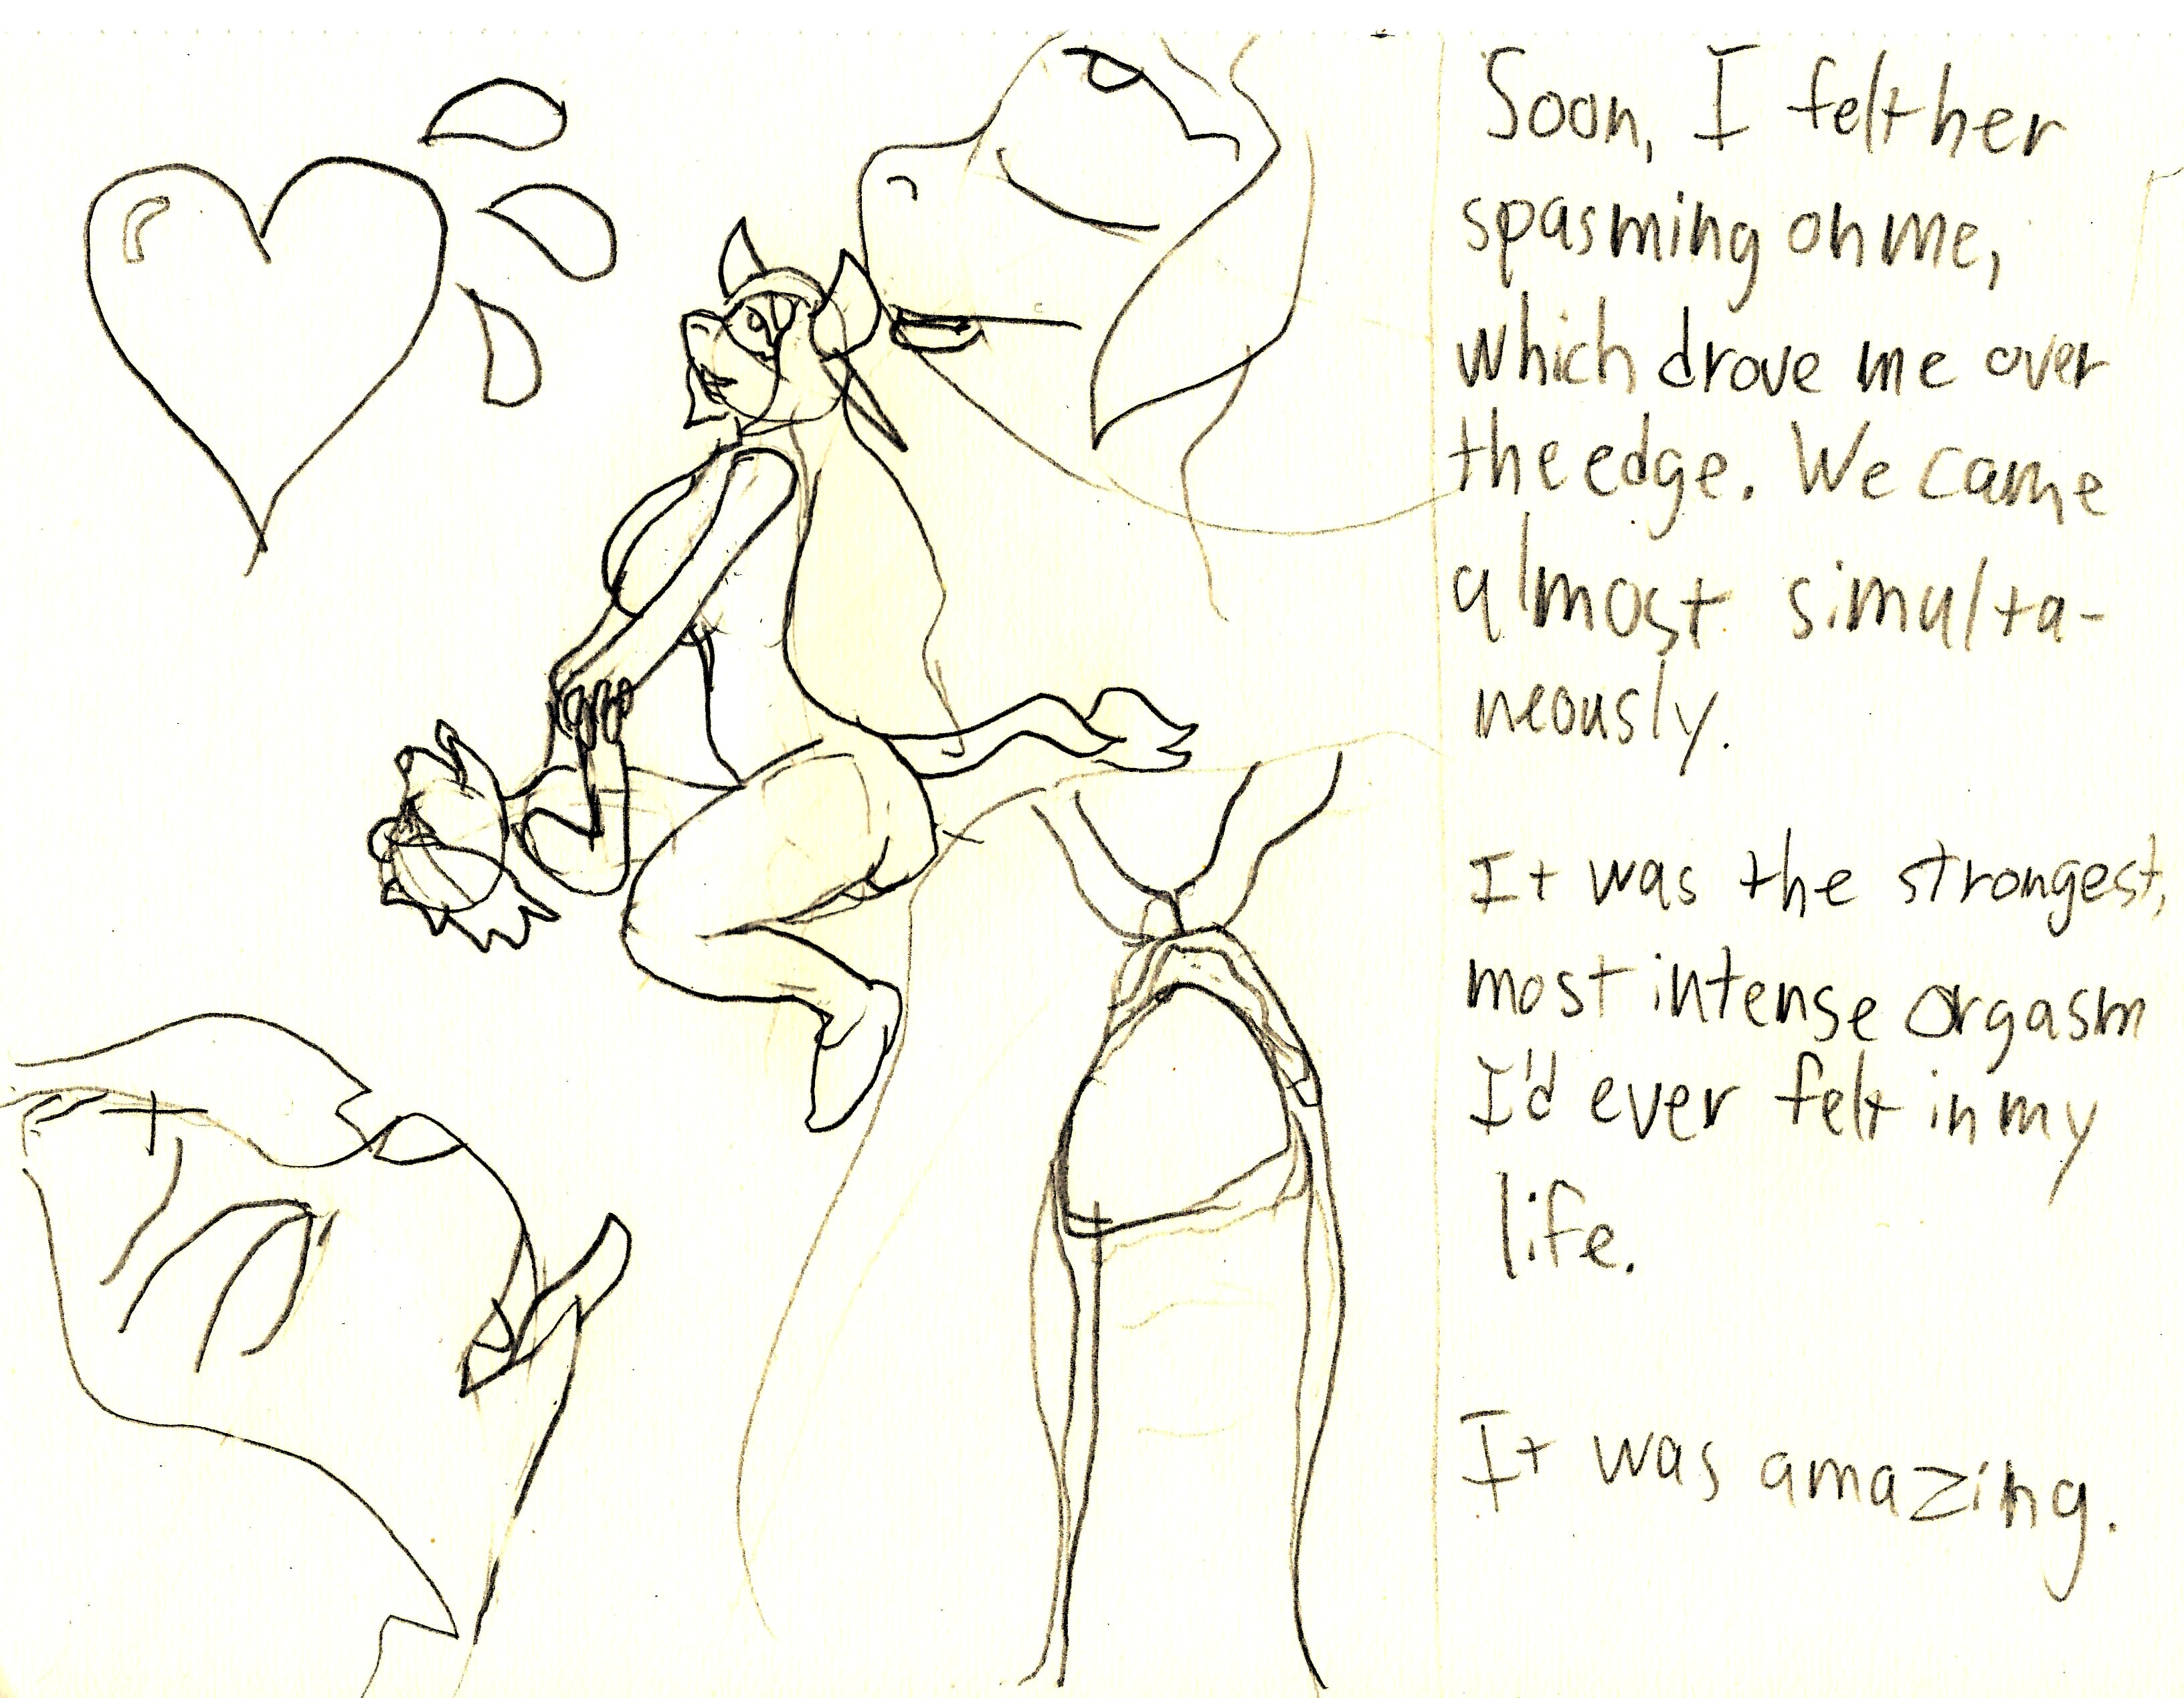 Soon, I felt her
spasming on me,
which drove me over
the edge. We came
almost simulta-
neously.
It was the strongest,
most intense orgasm
I'd ever felt in my
life.
It was amazing.